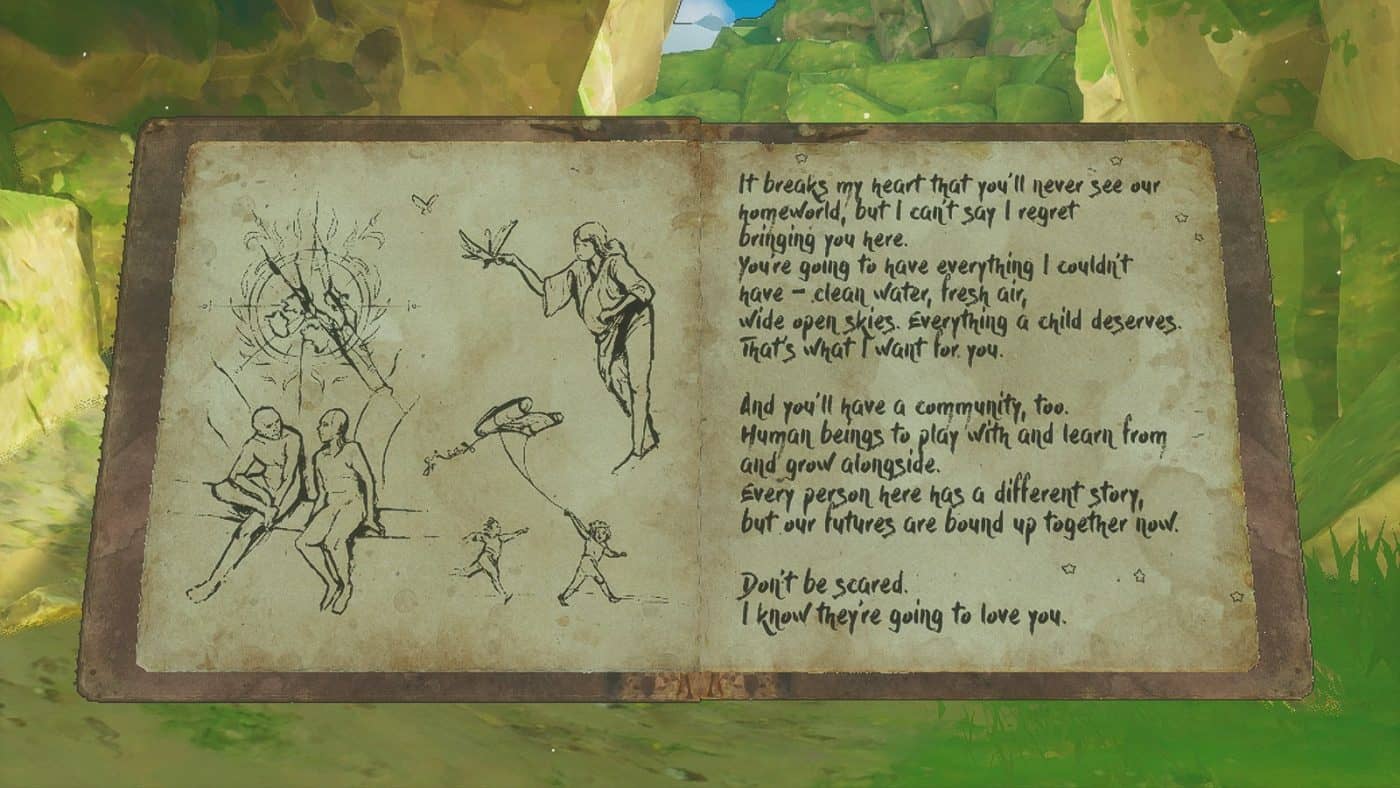 It breaks my heart that you'll never see our
homeworld, but I can't say I regret
bringing you here.
You're going to have everything I couldn't
have – clean water, fresh air,
wide open skies. Everything a child deserves.
That's what I want for you.
And you'll have a community, too.
Human beings to play with and learn from
and grow alongside.
Every person here has a different story,
but our futures are bound up together now.
Don't be scared.
I know they're going to love you.